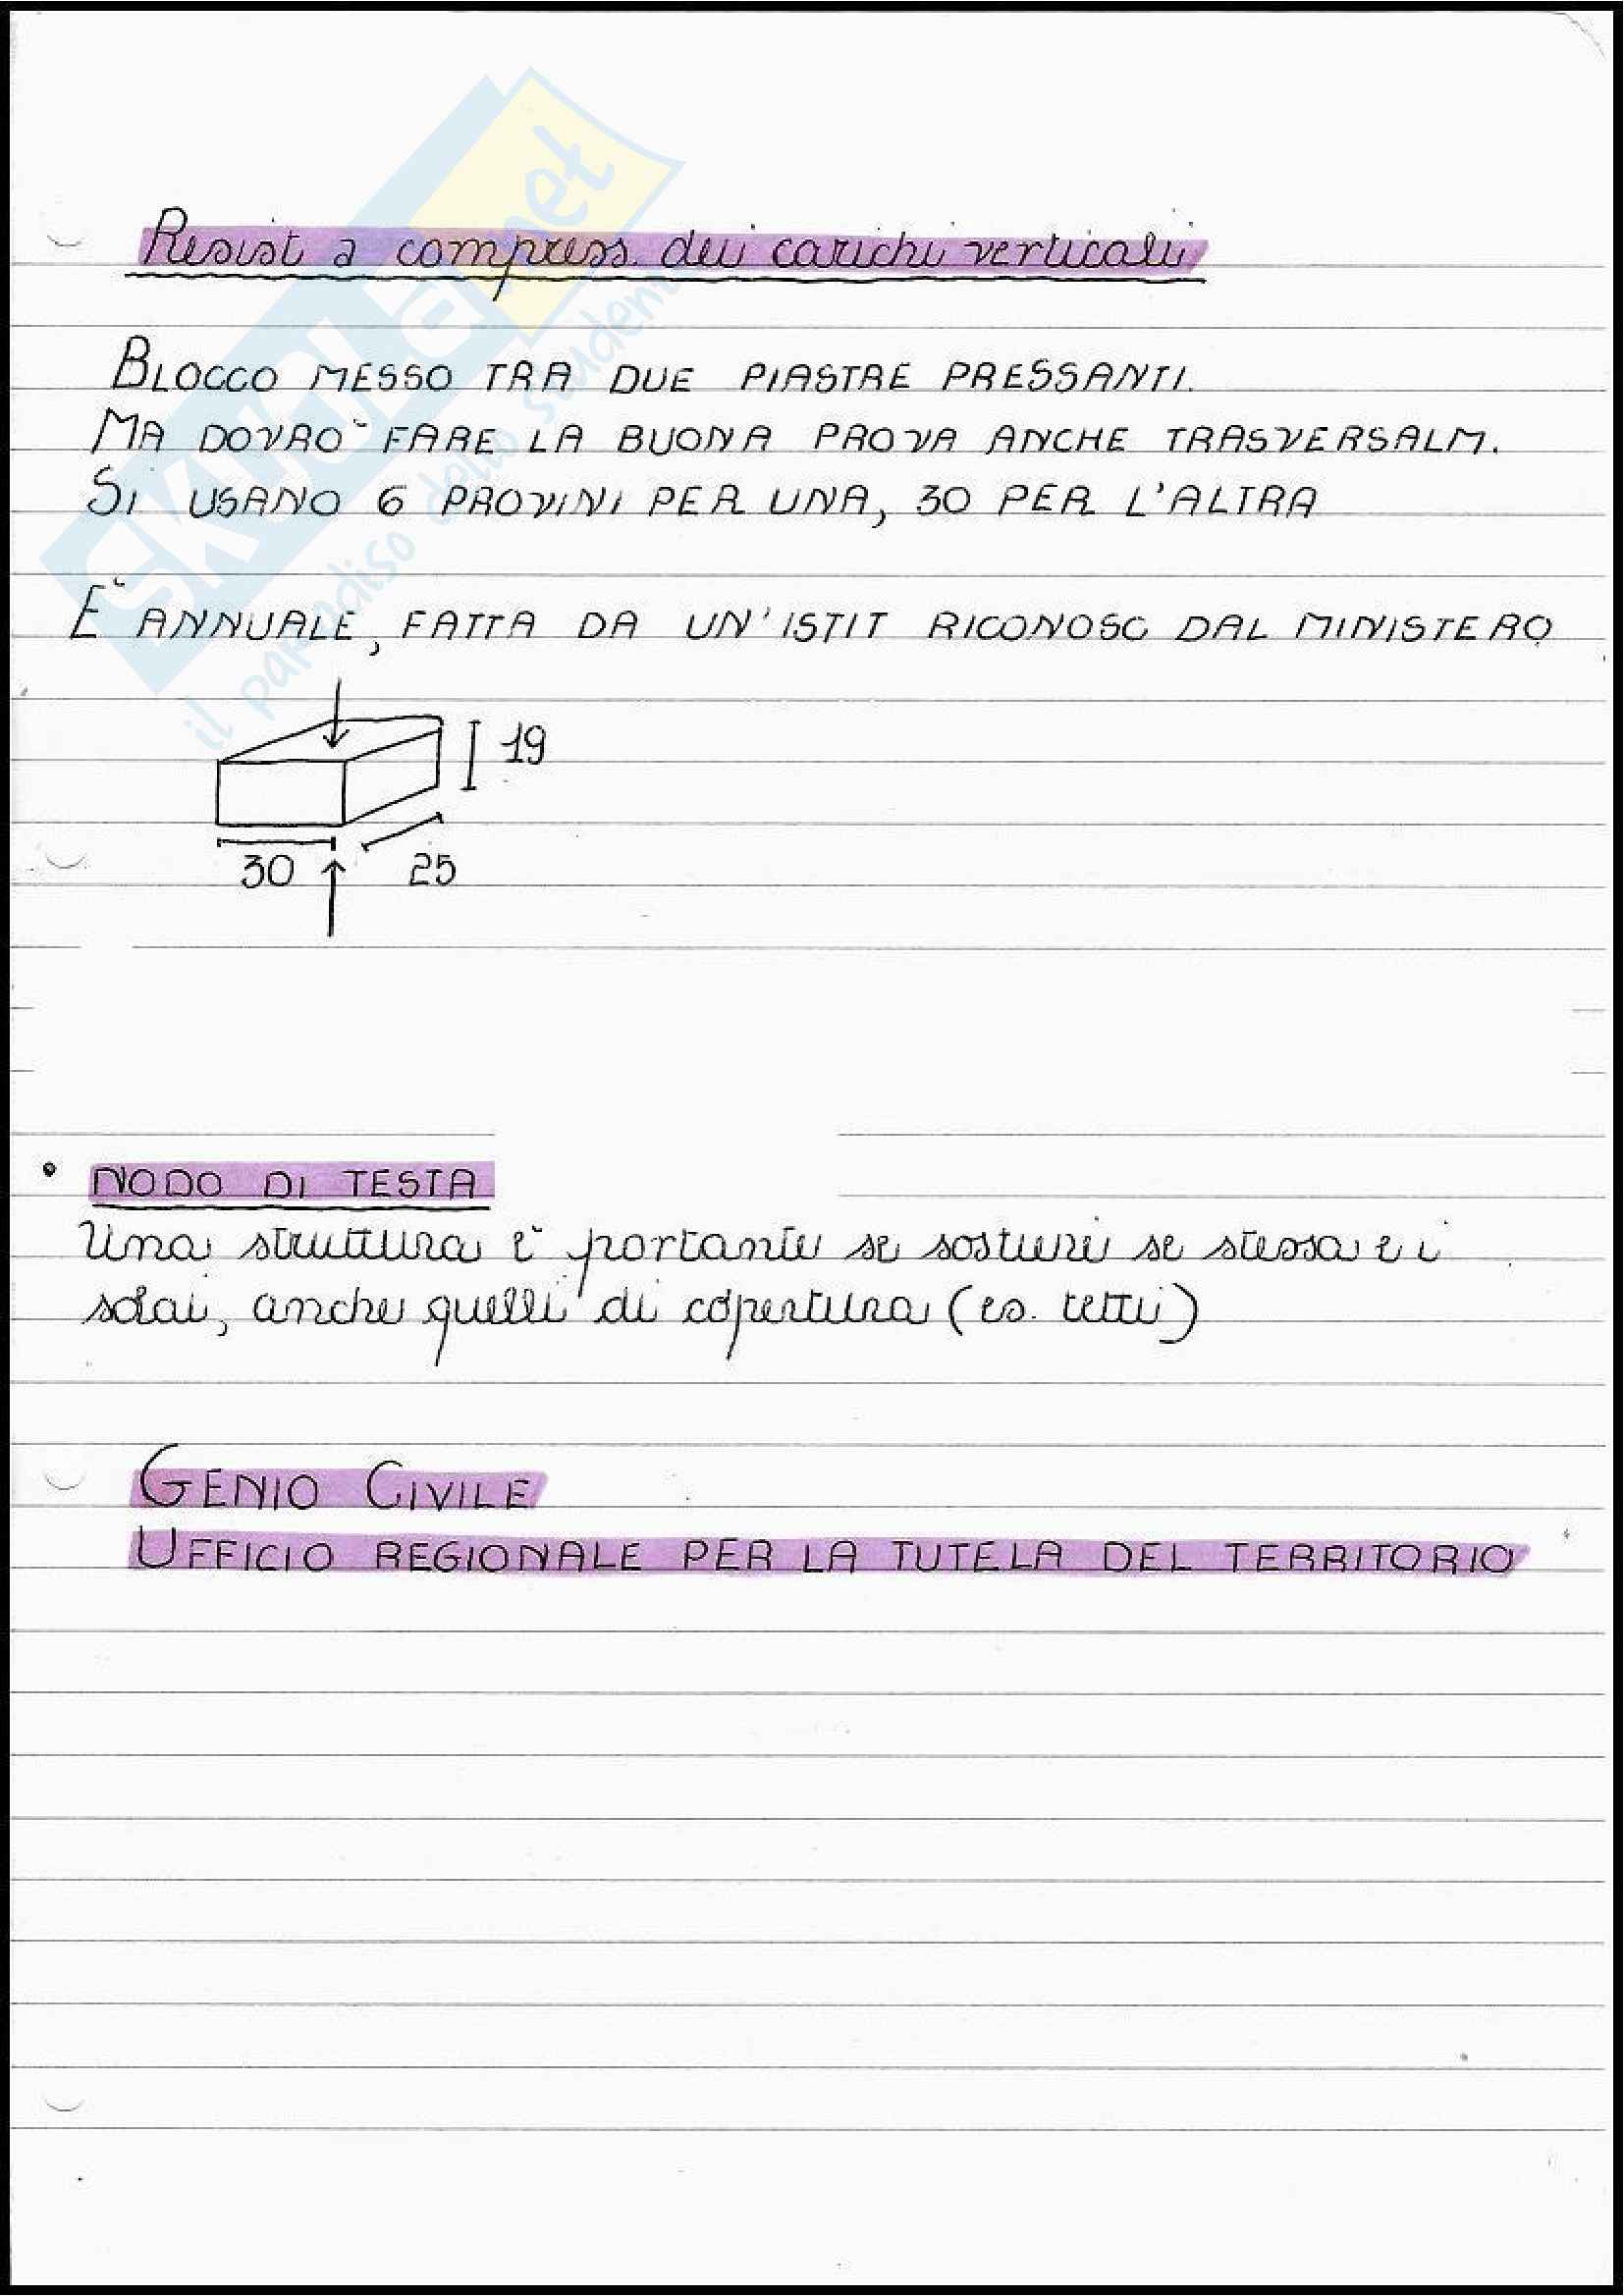 Resist a compress. dei carichi verticali
BLOCCO MESSO TRA DUE PIASTRE PRESSANTI.
MA DOVRO' FARE LA BUONA PROVA ANCHE TRASVERSALM.
SI USANO 6 PROVINI PER UNA, 30 PER L'ALTRA
E' ANNUALE, FATTA DA UN'ISTIT RICONOSC DAL MINISTERO
19
30
25
• NODO DI TESTA
Una struttura è portante se sostiene se stessa e i
solai, anche quelli di copertura (es. tetti)
GENIO CIVILE
UFFICIO REGIONALE PER LA TUTELA DEL TERRITORIO
skuola.net
il paradiso dello studente